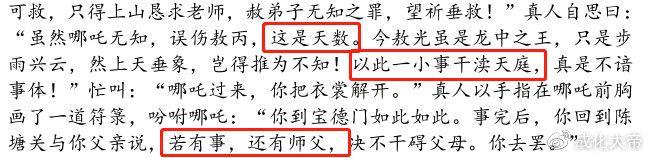 可救，只得上山恳求老师，赦弟子无知之罪，望祈垂救！”真人自思曰：
“虽然哪吒无知，误伤敖丙，这是天数。今敖光虽是龙中之王，只是步
雨兴云，然上天垂象，岂得推为不知！以此一小事干渎天庭，真是不谙
事体！”忙叫：“哪吒过来，你把衣裳解开。”真人以手指在哪吒前胸
画了一道符箓，吩咐哪吒：“你到宝德门如此如此。事完后，你回到陈
塘关与你父亲说，若有事，还有师父，决不干碍父母。你去罢。”
@成化大帝